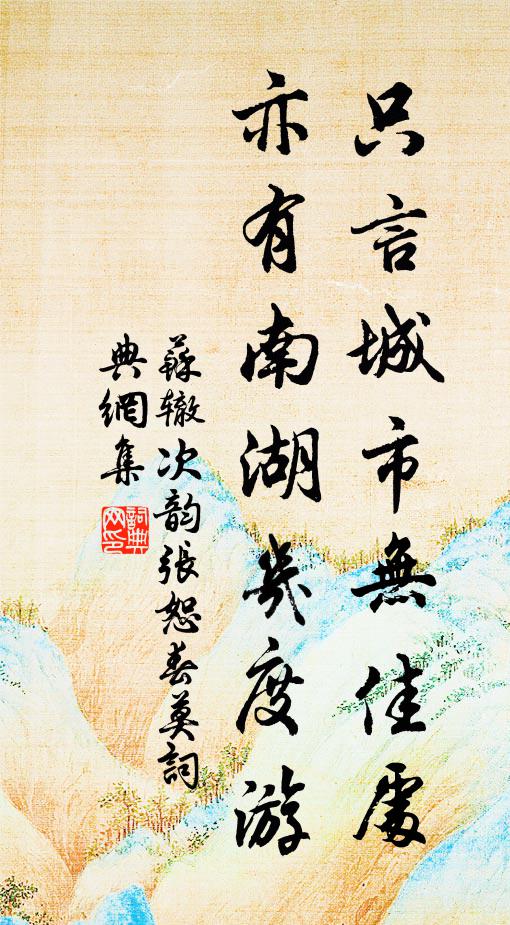 只言城市無佳處
亦有南湖幾度游
蘇轍次韵張恕春莫詞
典網集
詞典
网印